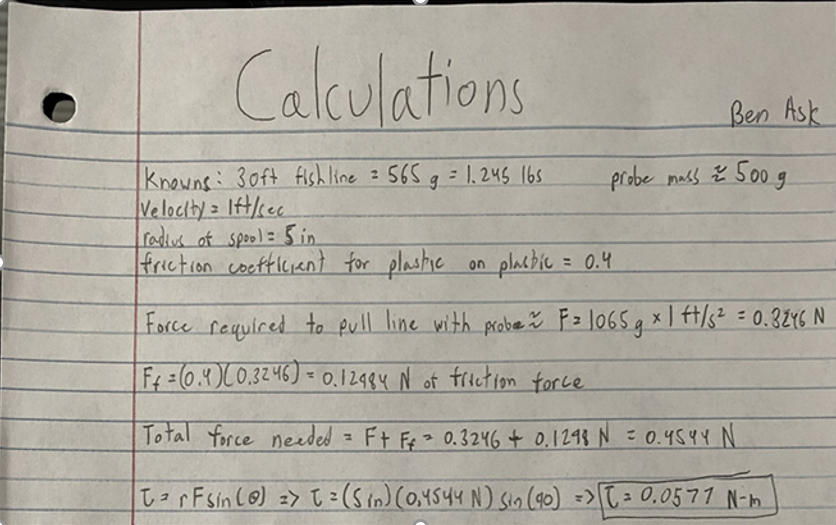 Calculations
Ben Ask
Knowns: 30ft fishline = 565 g = 1.245 lbs probe mass ≈ 500 g
Velocity = 1ft/sec
radius of spool = 5 in
friction coefficient for plastic on plastic = 0.4
Force required to pull line with probe ≈ F = 1065 g × 1 ft/s² = 0.3246 N
Ff = (0.4)(0.3246) = 0.12984 N of friction force
Total force needed = F + Ff = 0.3246 + 0.1298 N = 0.4544 N
τ = rFsin(θ) => τ = (5in)(0.4544 N) sin(90) => τ = 0.0577 N-m